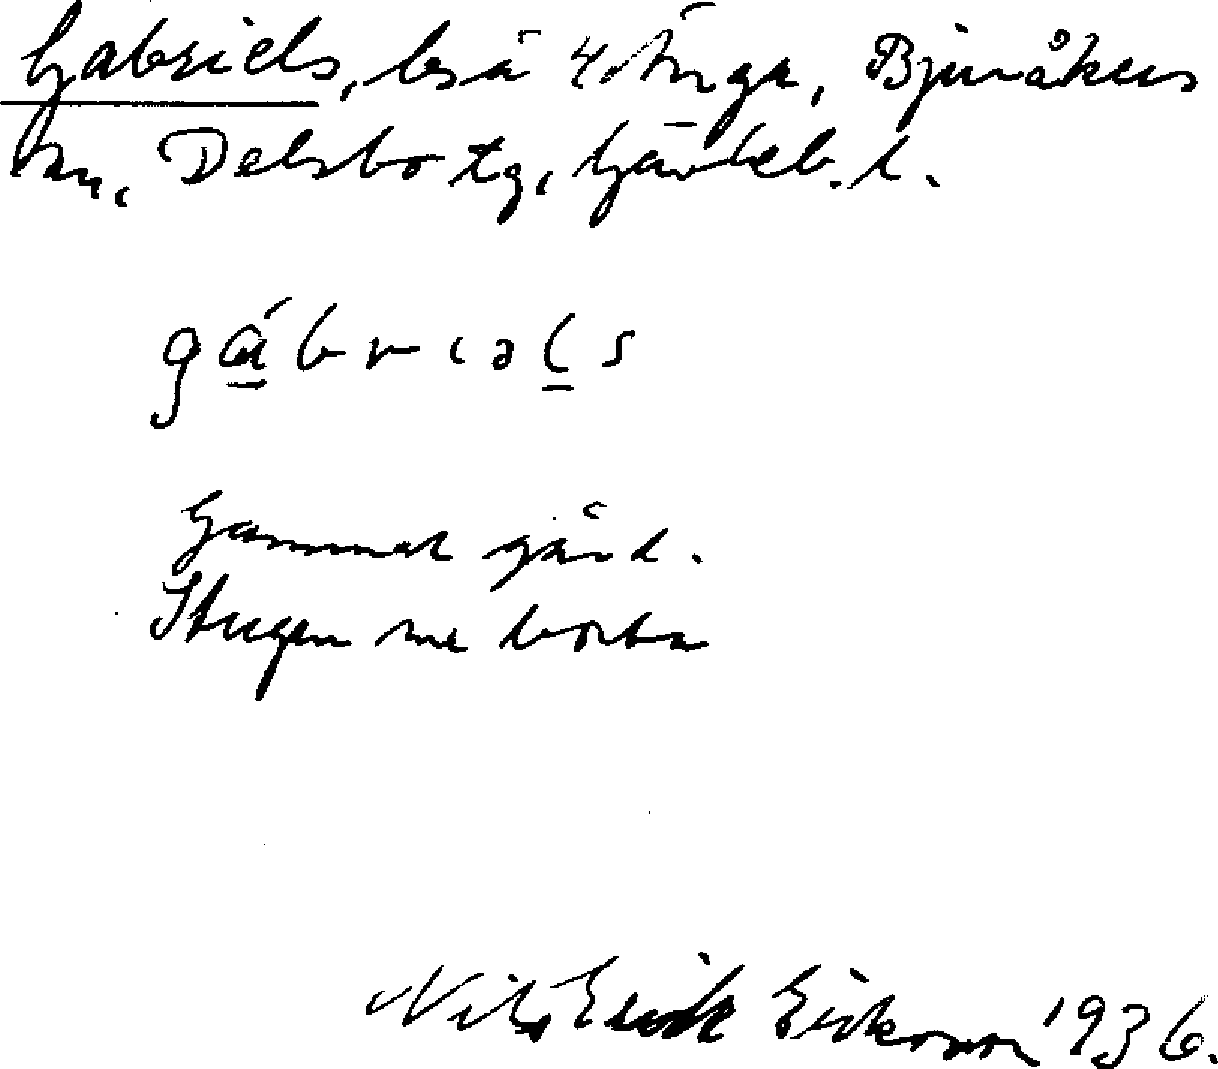 Gabriels, bså 4 Änga, Bjuråkers
sn, Delsbo tg, Gävleb. l.
gábrıəls
Gammal gård.
Stugen me borta
Nils Erik Erikson 1936.